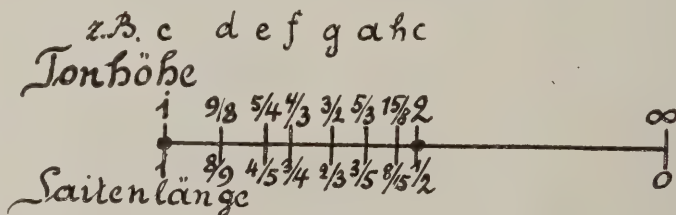 z.B. c d e f g a h c
Tonhöhe
1 9/8 5/4 4/3 3/2 5/3 15/8 2 ∞
1 8/9 4/5 3/4 2/3 3/5 8/15 1/2 0
Saitenlänge